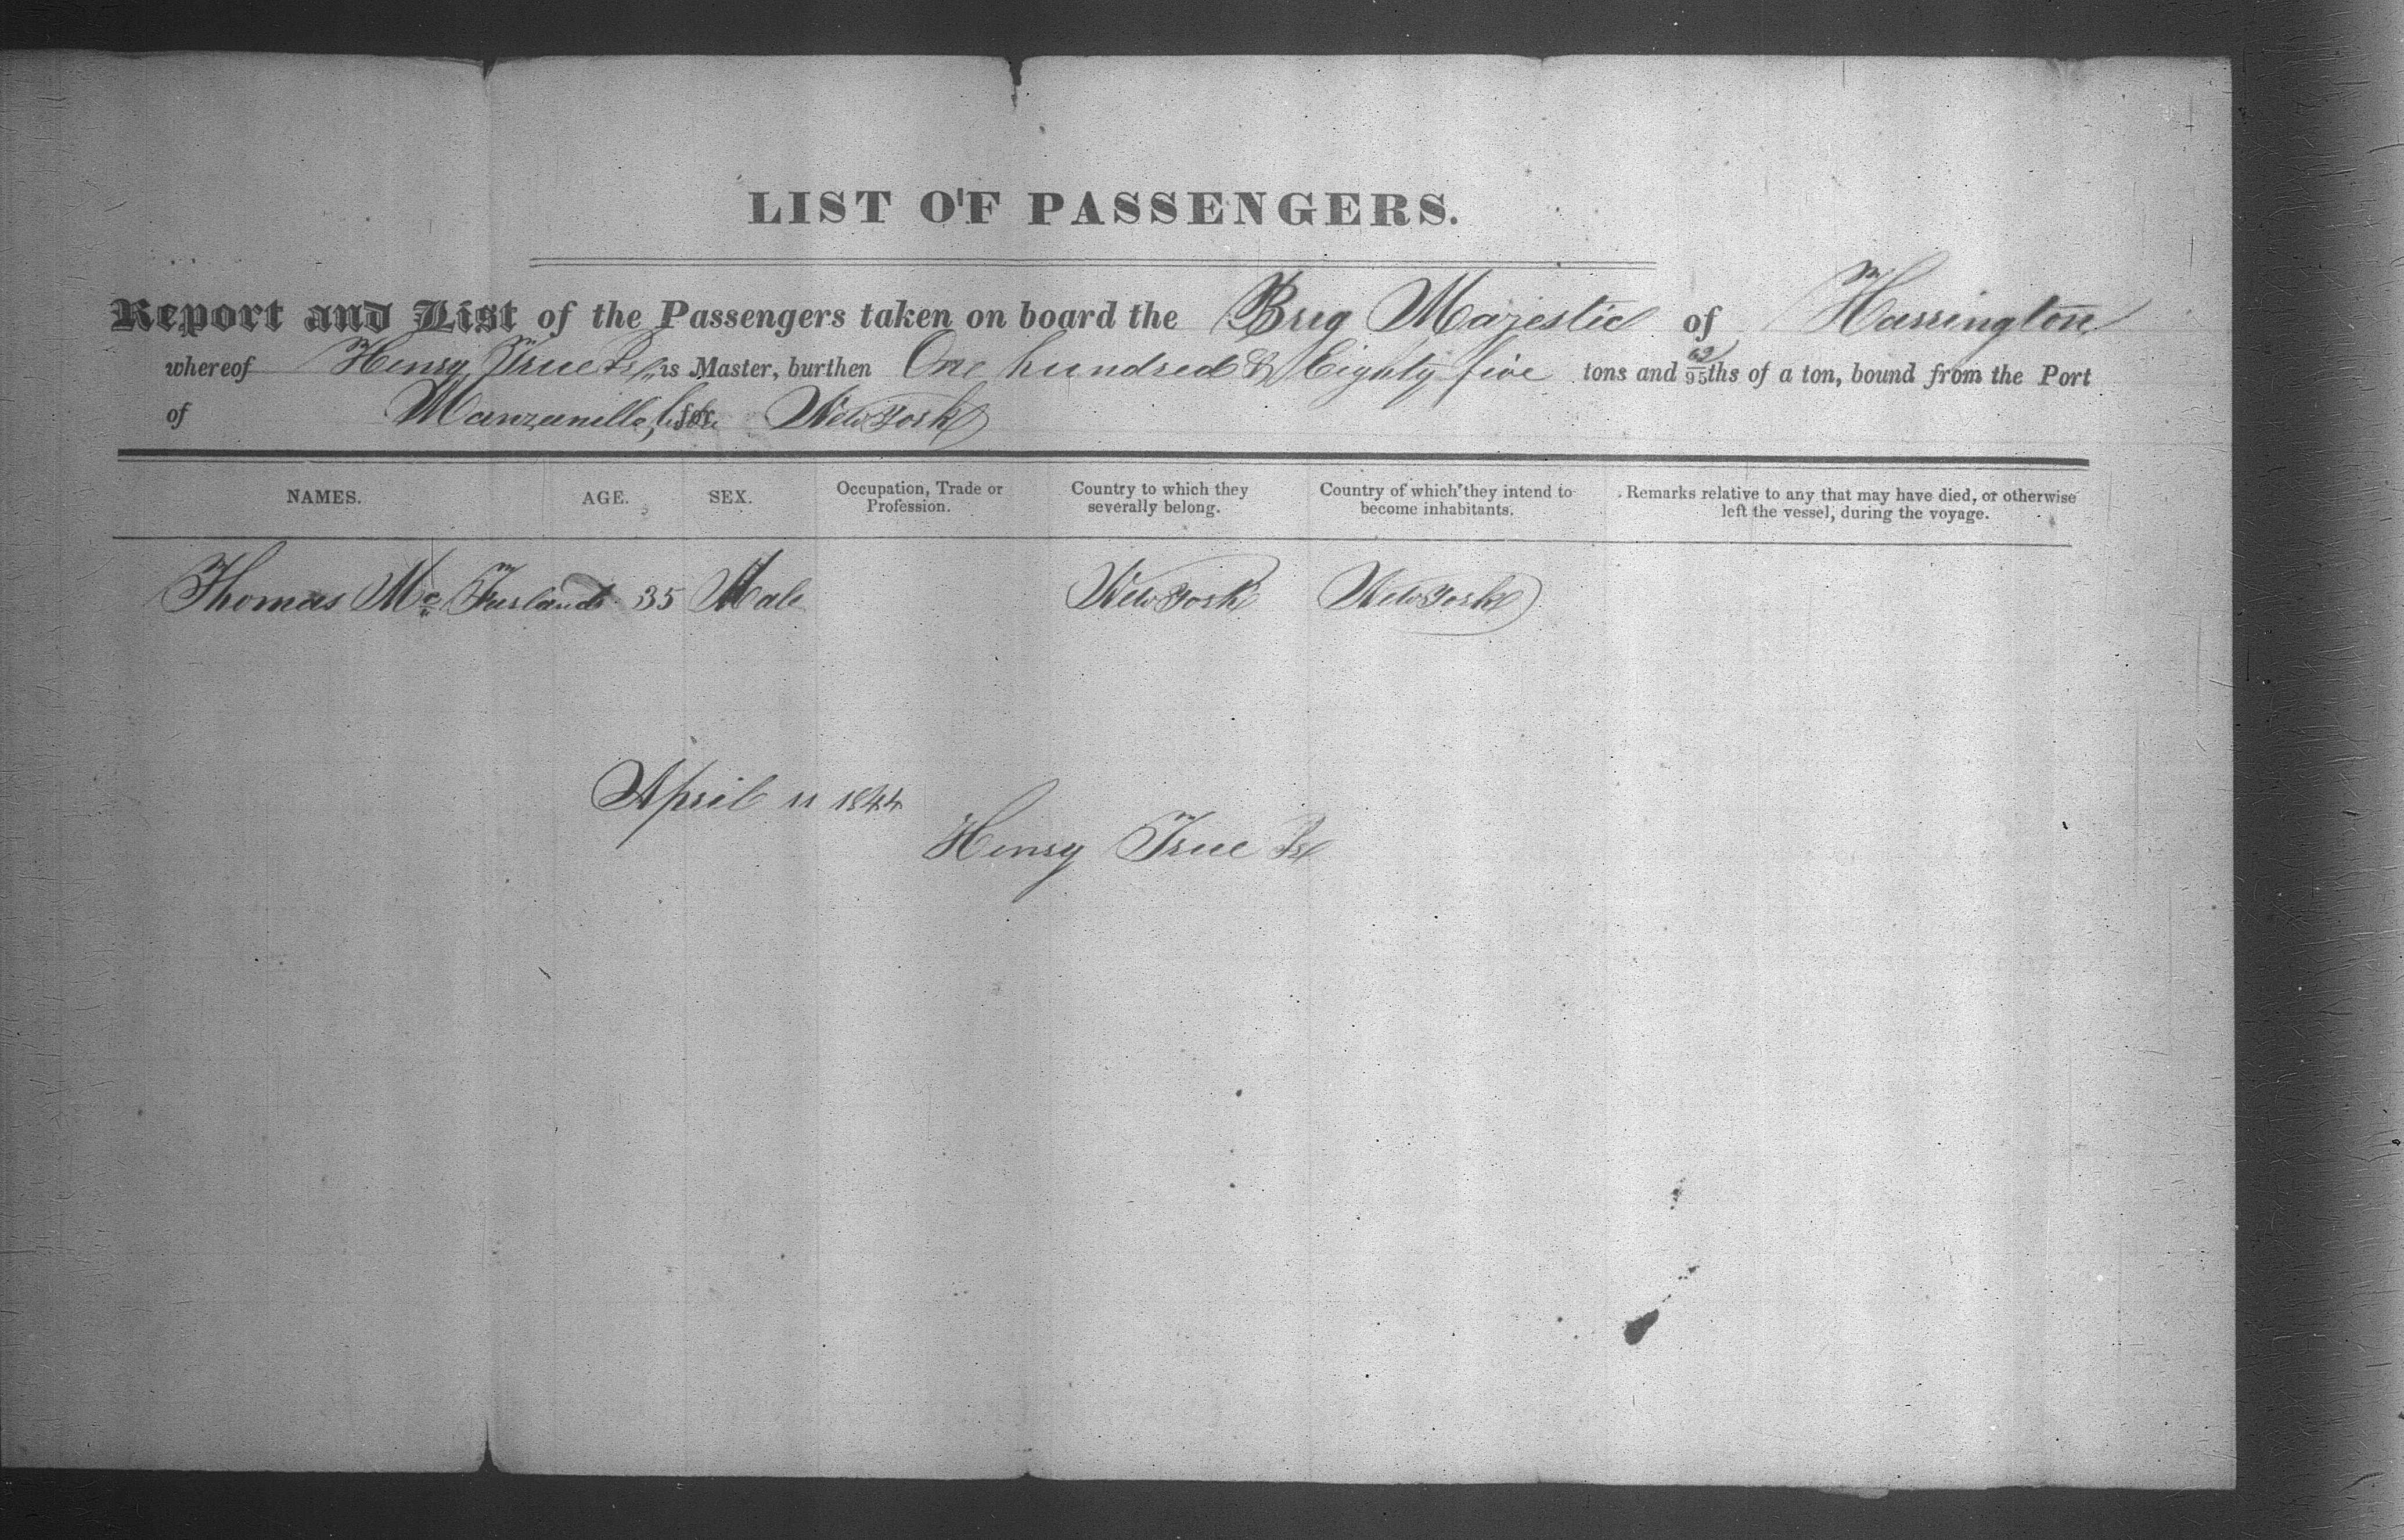 LIST OF PASSENGERS.
Report and List of the Passengers taken on board the Brig Majestic of Harrington
whereof Henry True Jr is Master, burthen One hundred & Eighty five tons and 62/95ths of a ton, bound from the Port
of Manzanillo, Cuba for New York
NAMES. AGE. SEX. Occupation, Trade or Profession. Country to which they severally belong. Country of which they intend to become inhabitants. Remarks relative to any that may have died, or otherwise left the vessel, during the voyage.
Thomas Mc Farland 35 Male New York New York
April 11 1844
Henry True Jr